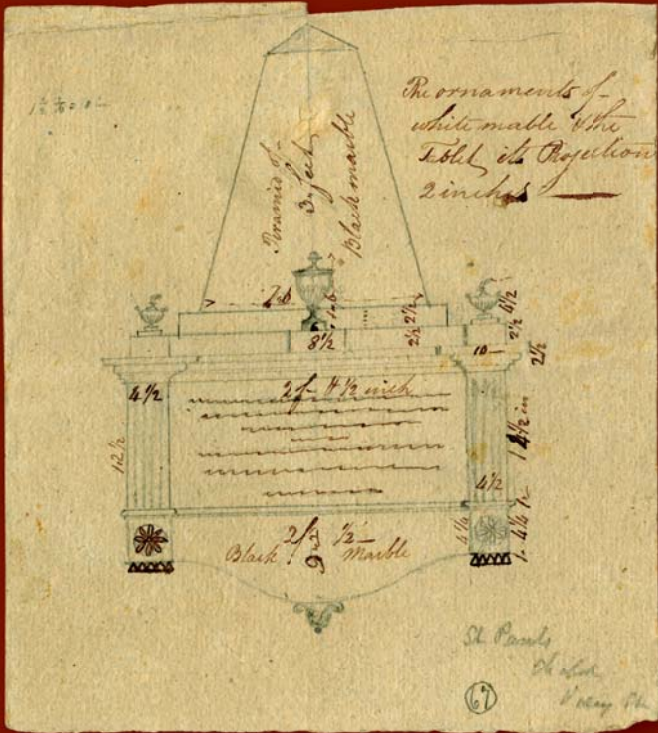 The ornaments of
white mable & the
Tablet its Projection
2 inches
Piramid of
3 feet
Black marble
8 1/2
2 1/2
2 1/2
4 1/2
2 1/2
2 1/2
10
4 1/2
2f 4 1/2 inch
1 4 1/2 in
4 1/2
4 1/4
2f 1/2
Black 9 Marble
St Pauls
67